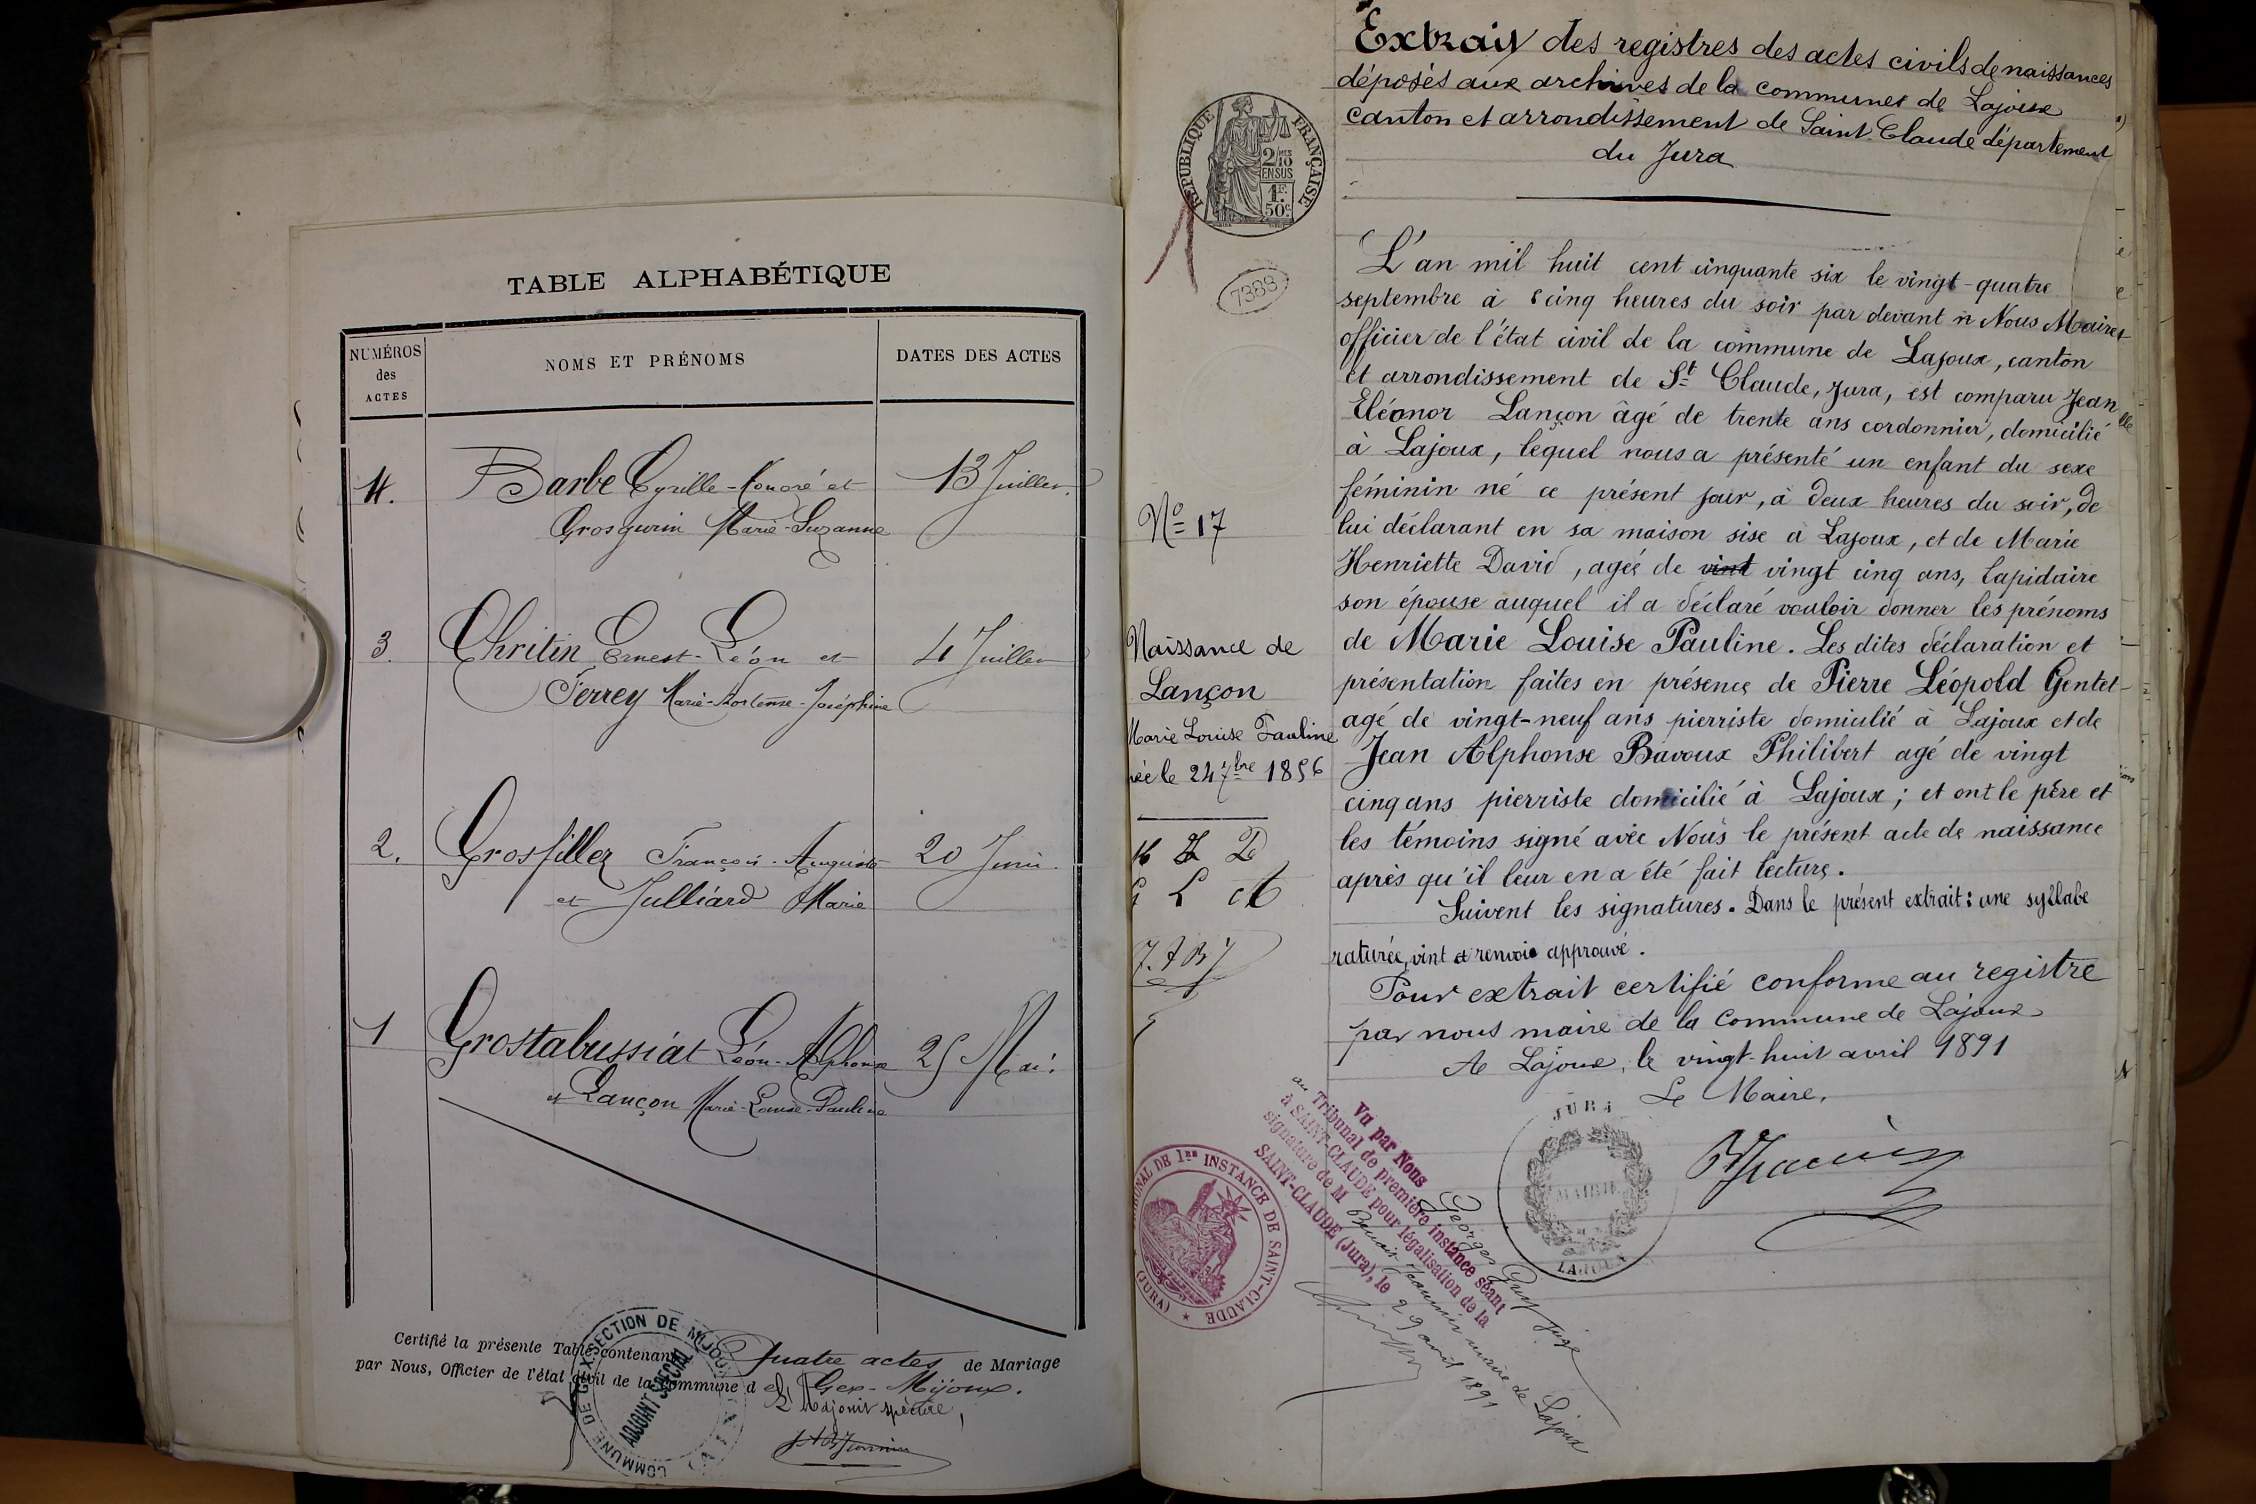 TABLE ALPHABÉTIQUE
NUMÉROS
des
ACTES
NOMS ET PRÉNOMS
DATES DES ACTES
4. Barbe Cyrille-Honoré et 13 Juillet.
Grosgurin Marie-Suzanne
3. Chritin Ernest-Léon et 4 Juillet
Ferrey Marie-Hortense-Joséphine
2. Grosfillez François-Auguste 20 Juin.
et Julliard Marie
1 Grostabussiat Léon-Alphonse 25 Mai.
et Lançon Marie-Louise-Pauline
Certifié la présente Table contenant Quatre actes de Mariage
par Nous, Officier de l'état civil de la Commune de Gex-Mijoux.
L'Adjoint spécial,
COMMUNE DE GEX SECTION DE MIJOUX
ADJOINT SPÉCIAL
Extrait des registres des actes civils de naissances
déposés aux archives de la commune de Lajoux
canton et arrondissement de Saint-Claude département
du Jura
RÉPUBLIQUE FRANÇAISE
2/10
EN SUS
1F.
50c.
7388
L'an mil huit cent cinquante six le vingt-quatre
septembre à cinq heures du soir par devant Nous Maire
officier de l'état civil de la commune de Lajoux, canton
et arrondissement de St Claude, Jura, est comparu Jean
Eléonor Lançon âgé de trente ans cordonnier, domicilié
à Lajoux, lequel nous a présenté un enfant du sexe
féminin né ce présent jour, à deux heures du soir, de
lui déclarant en sa maison sise à Lajoux, et de Marie
Henriette David, agée de vint vingt cinq ans, lapidaire
son épouse auquel il a déclaré vouloir donner les prénoms
de Marie Louise Pauline. Les dites déclaration et
présentation faites en présence de Pierre Léopold Gentet
agé de vingt-neuf ans pierriste domicilié à Lajoux et de
Jean Alphonse Bavoux Philibert agé de vingt
cinq ans pierriste domicilié à Lajoux ; et ont le père et
les témoins signé avec Nous le présent acte de naissance
après qu'il leur en a été fait lecture.
Suivent les signatures. Dans le présent extrait : une syllabe
raturée, vint et renvoi approuvé.
Pour extrait certifié conforme au registre
par nous maire de la Commune de Lajoux
A Lajoux, le vingt-huit avril 1891
Le Maire,
No 17
Naissance de
Lançon
Marie Louise Pauline
née le 24 7bre 1856
JURA
MAIRIE
LAJOUX
TRIBUNAL DE 1RE INSTANCE DE SAINT-CLAUDE
(JURA)
Vu par Nous Georges Guy juge
au Tribunal de première instance séant
à SAINT-CLAUDE pour légalisation de la
signature de M Benoit Jeannin maire de Lajoux
SAINT-CLAUDE (Jura), le 29 avril 1891